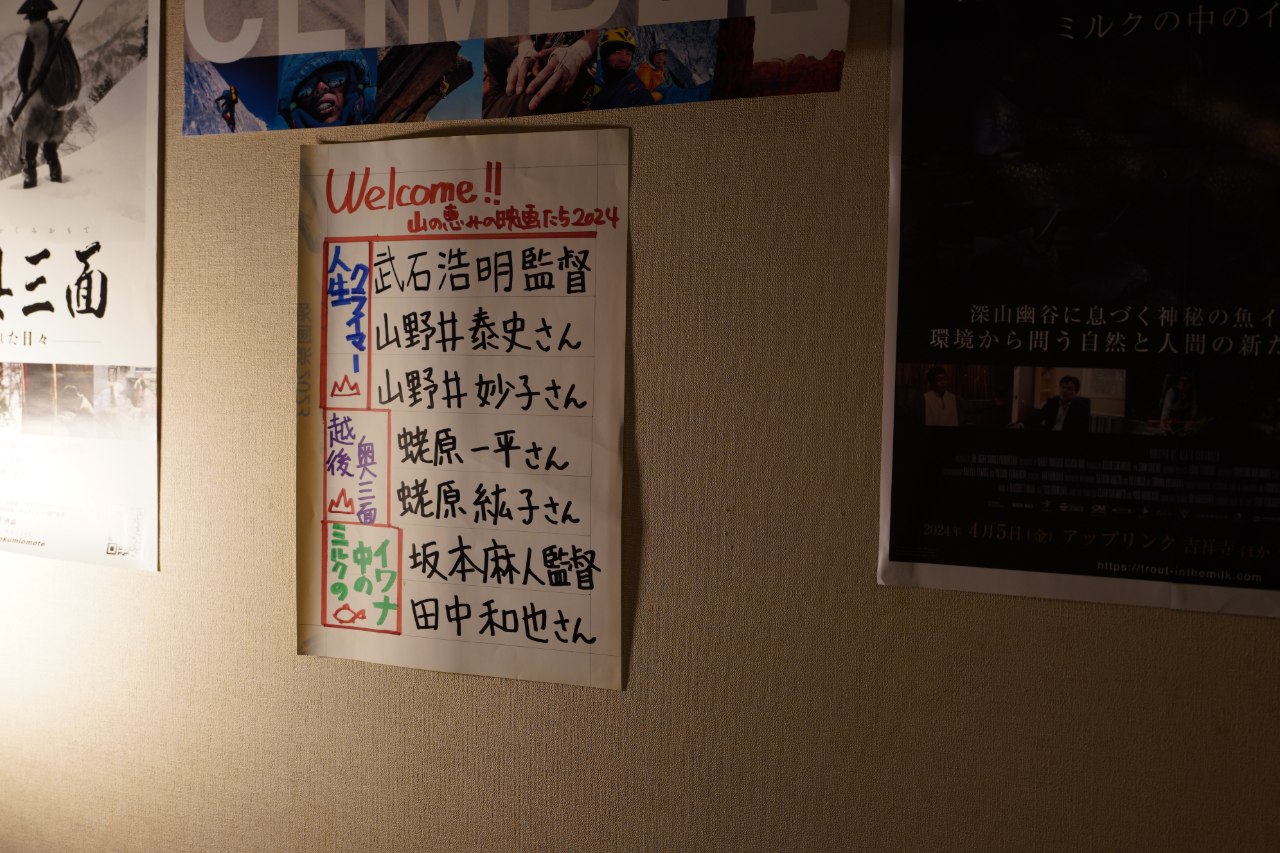 CLIMBER
Welcome!!
山の恵みの映画たち2024
人生クライマー
武石浩明監督
山野井泰史さん
山野井妙子さん
越後奥三面
蛯原一平さん
蛯原紘子さん
ミルクの中のイワナ
坂本麻人監督
田中和也さん
三面
た日々
okumiomote
ミルクの中のイ
深山幽谷に息づく神秘の魚イ
環境から問う自然と人間の新た
2024年 4月5日(金) アップリンク 吉祥寺 ほか
https://trout-inthemilk.com